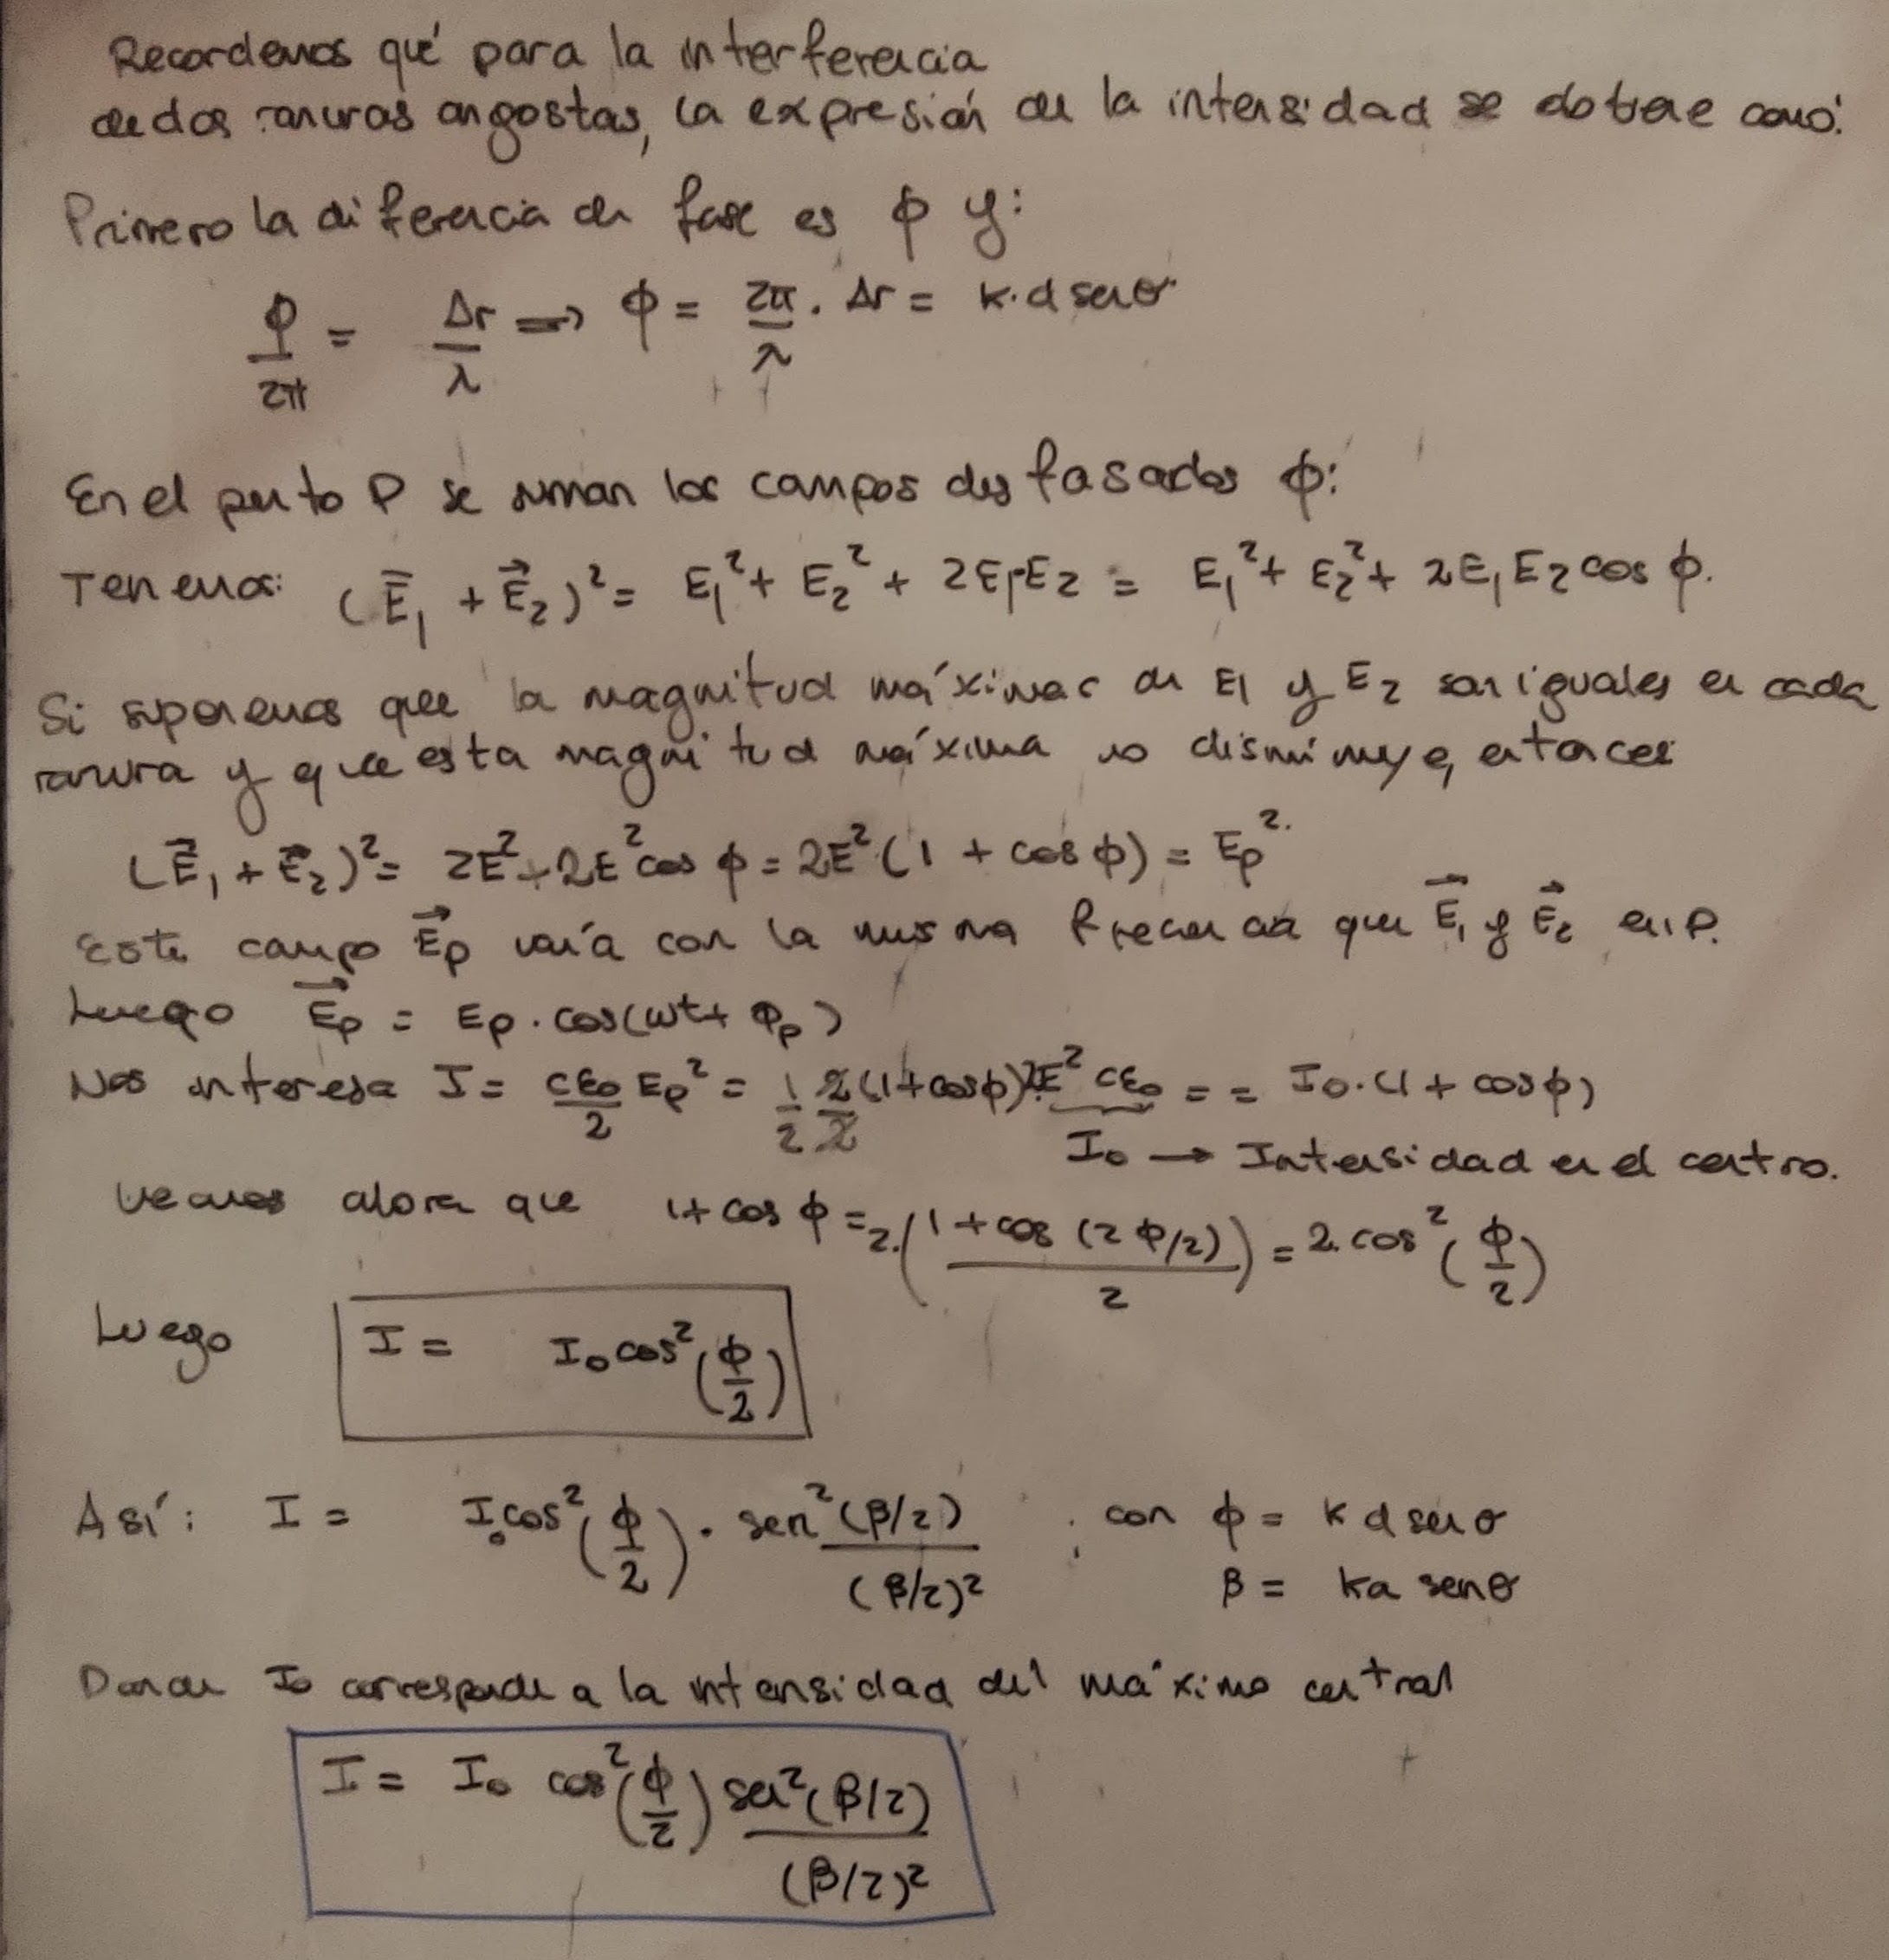 Recordemos qué para la interferencia
de dos ranuras angostas, la expresión de la intensidad se obtiene como:
Primero la diferencia de fase es ϕ y:
ϕ/2π = Δr/λ ⟹ ϕ = 2π/λ · Δr = k·d senθ
En el punto P se suman los campos desfasados ϕ:
Tenemos: (E⃗₁ + E⃗₂)² = E₁² + E₂² + 2E₁·E₂ = E₁² + E₂² + 2E₁E₂ cos ϕ.
Si suponemos que la magnitud máximas de E₁ y E₂ son iguales en cada
ranura y que esta magnitud máxima no disminuye, entonces
(E⃗₁ + E⃗₂)² = 2E² + 2E² cos ϕ = 2E² (1 + cos ϕ) = Ep².
Este campo E⃗p varía con la misma frecuencia que E⃗₁ y E⃗₂ en P.
Luego E⃗p = Ep · cos(ωt + ϕp)
Nos interesa I = cε₀/2 Ep² = 1/2 2/2 (1+cosϕ) 2E² cε₀ = = I₀·(1 + cosϕ)
I₀ → Intensidad en el centro.
Veamos ahora que 1+ cos ϕ = 2·((1 + cos (2 ϕ/2))/2) = 2 cos² (ϕ/2)
Luego I = I₀ cos² (ϕ/2)
Así: I = I₀ cos² (ϕ/2) · sen² (β/2)/(β/2)² ; con ϕ = k d senθ
β = ka senθ
Donde I₀ corresponde a la intensidad del máximo central
I = I₀ cos² (ϕ/2) sen² (β/2)/(β/2)²